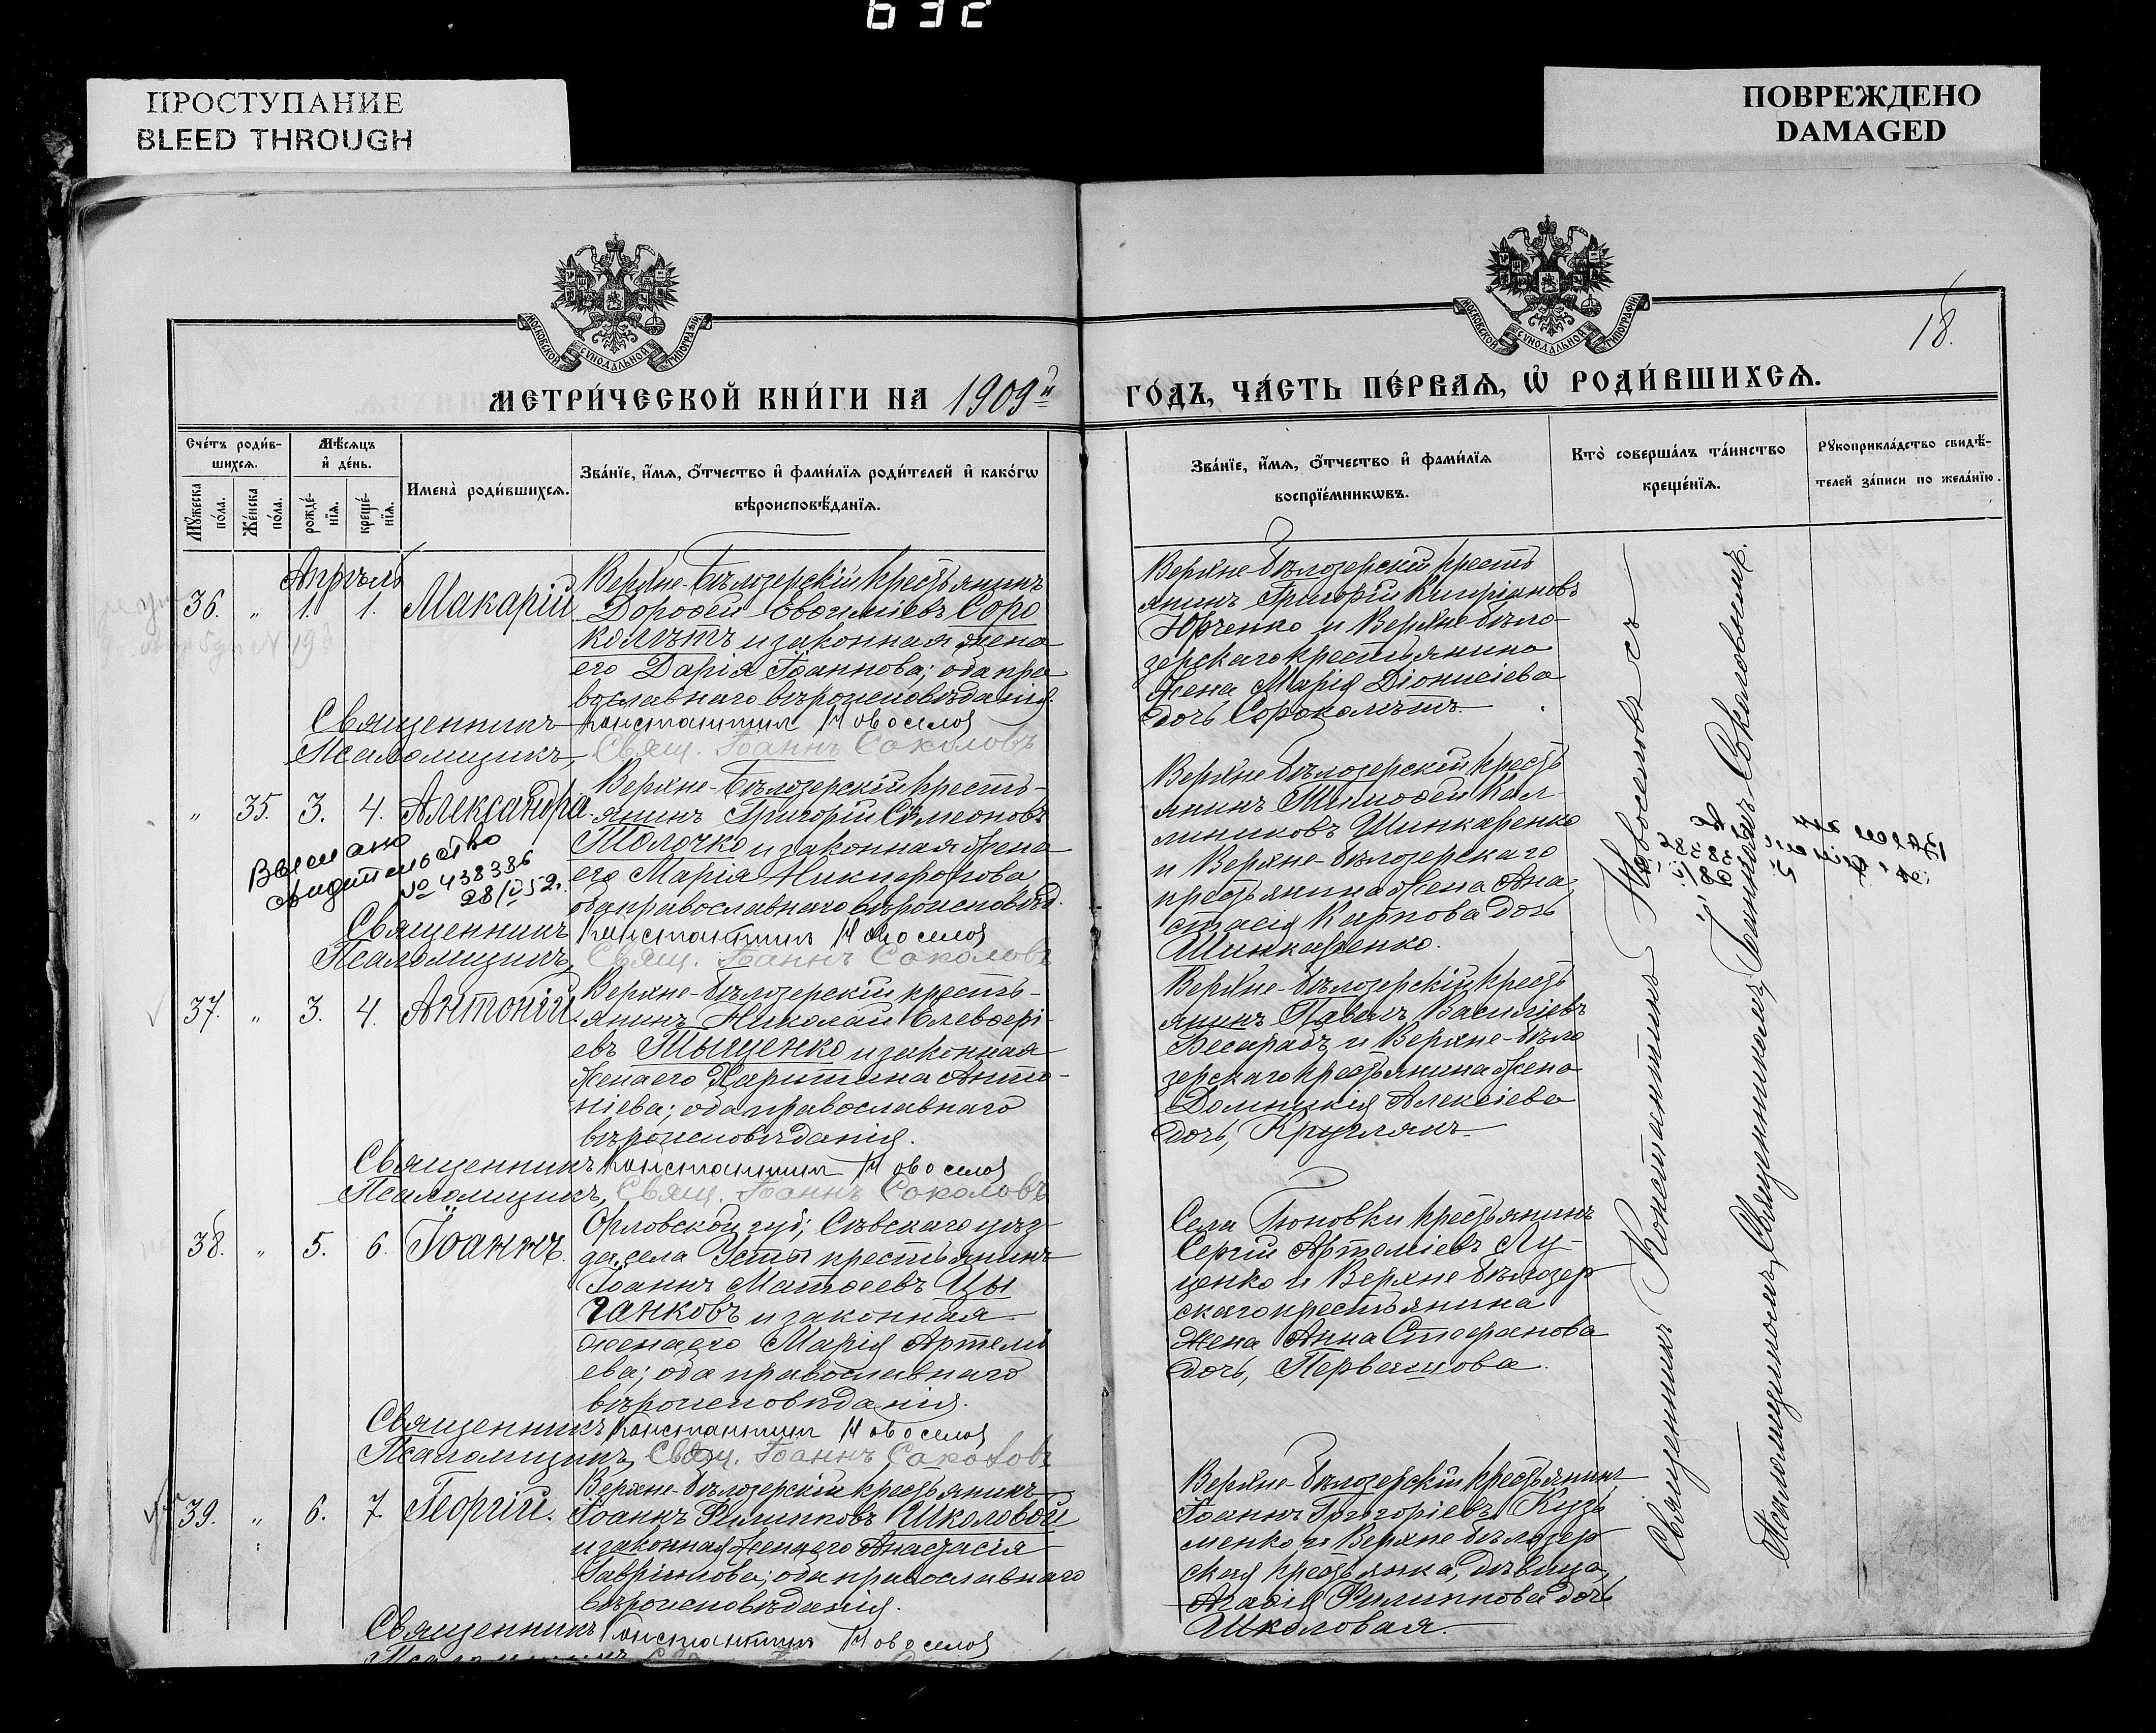 632
ПРОСТУПАНИЕ
BLEED THROUGH
ПОВРЕЖДЕНО
DAMAGED
МОСКОВСКОЙ СУНОДАЛЬНОЙ ТИПОГРАФІИ
МОСКОВСКОЙ СУНОДАЛЬНОЙ ТИПОГРАФІИ
18.
МЕТРИ́ЧЕСКОЙ КНИ́ГИ НА 1909й
ГО́ДЪ, ЧА́СТЬ ПЕ́РВАѦ, Ѡ҆ РОДИ́ВШИХСѦ.
Сче́тъ роди́в-
шихсѧ.
Мѣ́сѧцъ
и҆ де́нь.
Мꙋ́жеска
по́ла.
Же́нска
по́ла.
рожде́-
нїѧ.
креще́-
нїѧ.
Имена̀ роди́вшихсѧ.
Зва́нїе, и҆́мѧ, ѻ҆́тчество и҆ фами́лїѧ роди́телей и҆ како́гѡ
вѣроисповѣ́данїѧ.
Зва́нїе, и҆́мѧ, ѻ҆́тчество и҆ фами́лїѧ
воспрїе́мникѡвъ.
Кто̀ соверша́лъ та́инство
креще́нїѧ.
Рꙋкоприкла́дство свидѣ́-
телей за́писи по жела́нїю.
Апрѣль
36. " 1. 1. Макарій
Верхне-Бѣлозерскій кресть янинъ
Дорофей Евфиміевъ Соро
колѣтъ и законная жена
его Дарія Іоаннова; оба пра
вославнаго вѣроисповѣданія.
Священникъ Константин Новоселов
Псаломщикъ, Свящ. Іоаннъ Соколовъ
Верхне-Бѣлозерскій кресть
янинъ Григорій Кипріановъ
Юрченко и Верхне-бѣло-
зерскаго крестьянина
жена Марія Діонисіева
дочь Сорокалѣтъ.
" 35. 3. 4. Александра
Верхне-Бѣлозерскій кресть-
янинъ Григорій Симеоновъ
Толочко и законная жена
его Марія Никифорова
оба православнаго вѣроисповѣд.
Выслано
свидетельство
№ 438386
28/V 52г.
Священникъ Константин Новоселов
Псаломщикъ, Свящ. Іоаннъ Соколовъ
Верхне-бѣлозерскій кресть
янинъ Тимофей Кал
линиковъ Шинкаренко
и Верхне-бѣлозерскаго
крестьянина жена Ана
стасія Карпова дочь
Шинкаренко.
37. " 3. 4. Антоній
Верхне-бѣлозерскій кресть-
янинъ Николай Елевфері-
евъ Тыщенко и законная
жена его Харитина Анто-
ніева; оба православнаго
вѣроисповѣданія.
Священникъ Константин Новоселов
Псаломщикъ, Свящ. Іоаннъ Соколовъ
Верхне-бѣлозерскій кресть
янинъ Павелъ Василіевъ
Бесарабъ и Верхне-бѣло
зерскаго крестьянина жена
Домникія Алексіева
дочь, Круглякъ
38. " 5. 6. Іоаннъ.
Орловской губ; Сѣвскаго уѣз-
да, села Усты крестьянинъ
Іоаннъ Матѳеевъ Цы
ганковъ и законная
жена его Марія Артемі
ева; оба православнаго
вѣроисповѣданія.
Священникъ Константин Новоселов
Псаломщикъ, Свящ. Іоаннъ Соколовъ
Села Тюновки крестьянинъ
Сергій Артеміевъ Лу-
ценко и Верхне-бѣлозер
скаго крестьянина
жена Анна Стефанова
дочь,
39. " 6. 7. Георгій.
Верхне-бѣлозерскій крестьянинъ
Іоаннъ Филипповъ Школовой
и законная жена его Анастасія
Гавріилова; оба православнаго
вѣроисповѣданія.
Священникъ Константин Новоселов
Верхне-бѣлозерскій крестьянинъ
Іоаннъ Григоріевъ Кузь
менко и Верхне-бѣлозер
ская крестьянка, дѣвица,
Агафія Филиппова дочь
Школовая.
Священникъ Константинъ Новоселовъ съ
Псаломщикомъ, Священникомъ Іоанномъ Соколовымъ.